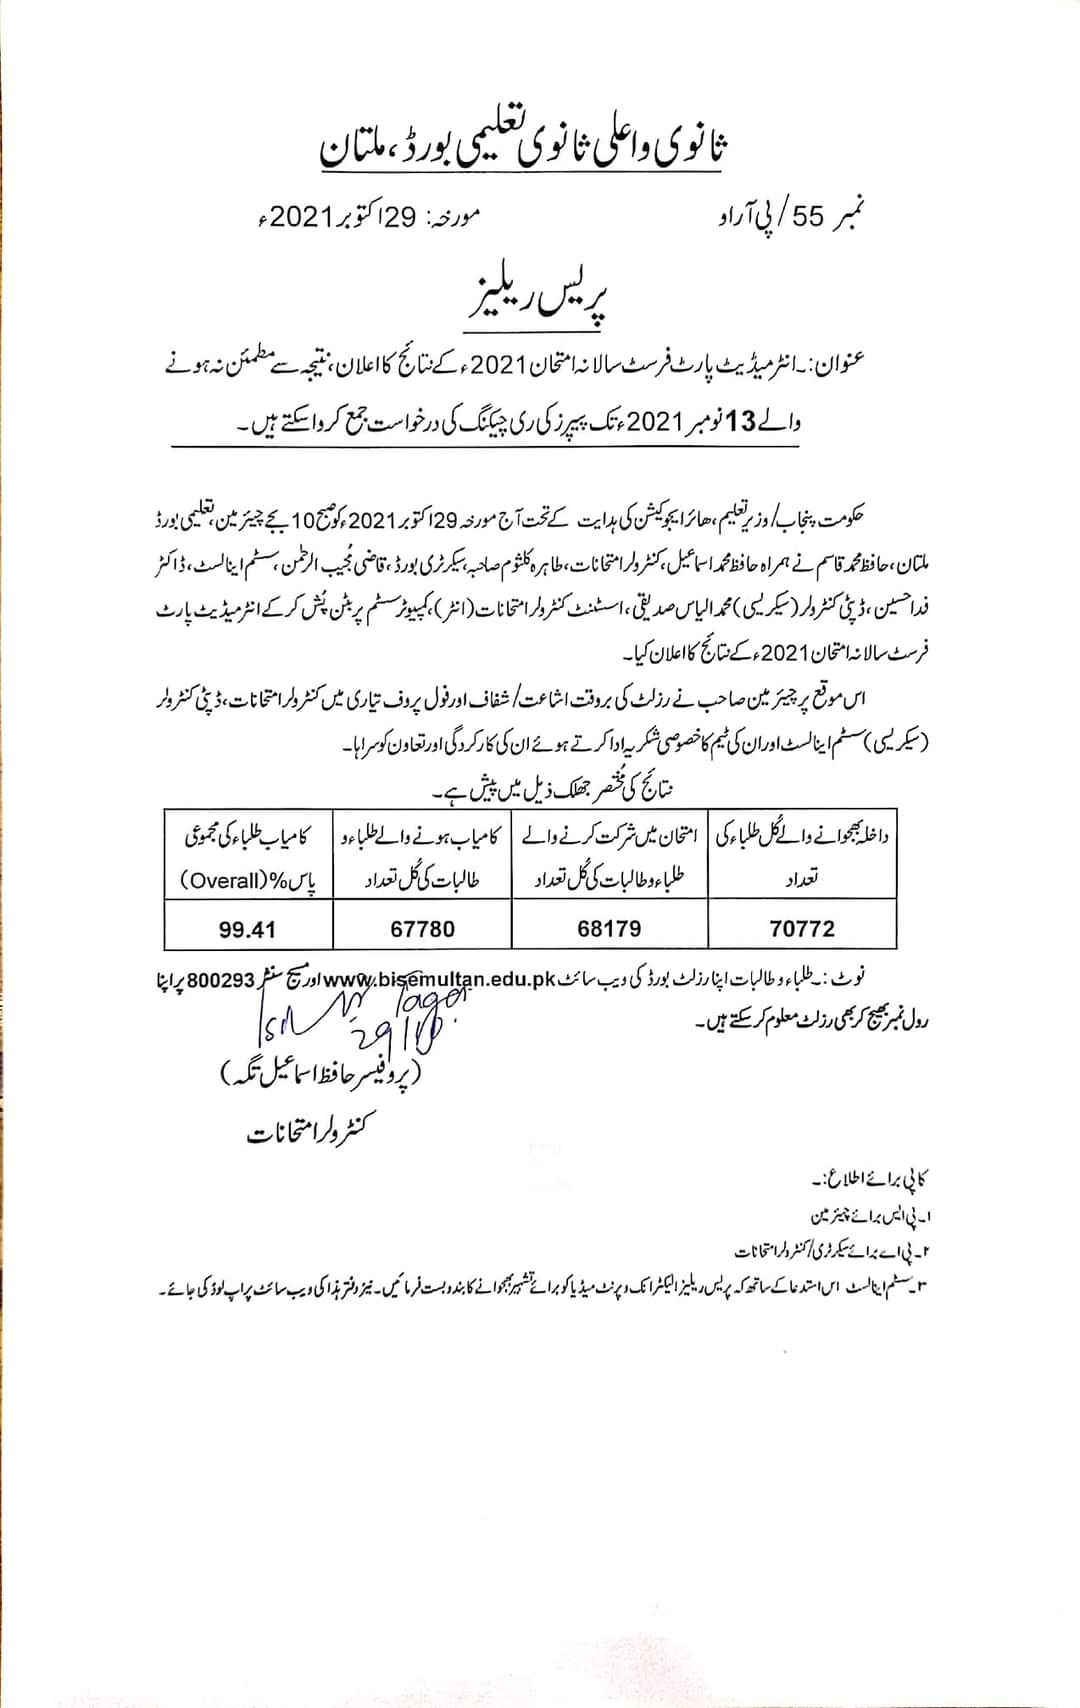 ثانوی و اعلی ثانوی تعلیمی بورڈ، ملتان
نمبر 55/پی آر او مورخہ: 29 اکتوبر 2021ء
پریس ریلیز
عنوان:۔ انٹرمیڈیٹ پارٹ فرسٹ سالانہ امتحان 2021ء کے نتائج کا اعلان، نتیجہ سے مطمئن نہ ہونے
والے 13 نومبر 2021ء تک پیپرز کی ری چیکنگ کی درخواست جمع کروا سکتے ہیں۔
حکومت پنجاب/وزیر تعلیم، ھائر ایجوکیشن کی ہدایت کے تحت آج مورخہ 29 اکتوبر 2021ء کو صبح 10 بجے چیئرمین، تعلیمی بورڈ
ملتان، حافظ محمد قاسم نے ہمراہ حافظ محمد اسماعیل، کنٹرولر امتحانات، طاہرہ کلثوم صاحبہ، سیکرٹری بورڈ، قاضی مُجیب الرحمٰن، سسٹم اینالسٹ، ڈاکٹر
فدا حسین، ڈپٹی کنٹرولر (سیکریسی) محمد الیاس صدیقی، اسسٹنٹ کنٹرولر امتحانات (انٹر)، کمپیوٹر سسٹم پر بٹن پُش کر کے انٹرمیڈیٹ پارٹ
فرسٹ سالانہ امتحان 2021ء کے نتائج کا اعلان کیا۔
اس موقع پر چیئرمین صاحب نے رزلٹ کی بروقت اشاعت/شفاف اور فول پروف تیاری میں کنٹرولر امتحانات، ڈپٹی کنٹرولر
(سیکریسی) سسٹم اینالسٹ اور ان کی ٹیم کا خصوصی شکریہ ادا کرتے ہوئے ان کی کارکردگی اور تعاون کو سراہا۔
نتائج کی مُختصر جھلک ذیل میں پیش ہے۔
داخلہ بھجوانے والے کُل طلباء کی امتحان میں شرکت کرنے والے کامیاب ہونے والے طلباء و کامیاب طلباء کی مجموعی
تعداد طلباء و طالبات کی کُل تعداد طالبات کی کُل تعداد پاس% (Overall)
70772 68179 67780 99.41
نوٹ:۔ طلباء و طالبات اپنا رزلٹ بورڈ کی ویب سائٹ www.bisemultan.edu.pk اور میسج سنٹر 800293 پر اپنا
رول نمبر بھیج کر بھی رزلٹ معلوم کر سکتے ہیں۔
29/10
(پروفیسر حافظ اسماعیل تگہ)
کنٹرولر امتحانات
کاپی برائے اطلاع:۔
۱۔ پی ایس برائے چیئرمین
۲۔ پی اے برائے سیکرٹری/کنٹرولر امتحانات
۳۔ سسٹم اینالسٹ اس استدعا کے ساتھ کہ پریس ریلیز الیکٹرانک و پرنٹ میڈیا کو برائے تشہیر بھجوانے کا بندوبست فرمائیں۔ نیز دفتر ہذا کی ویب سائٹ پر اپ لوڈ کی جائے۔